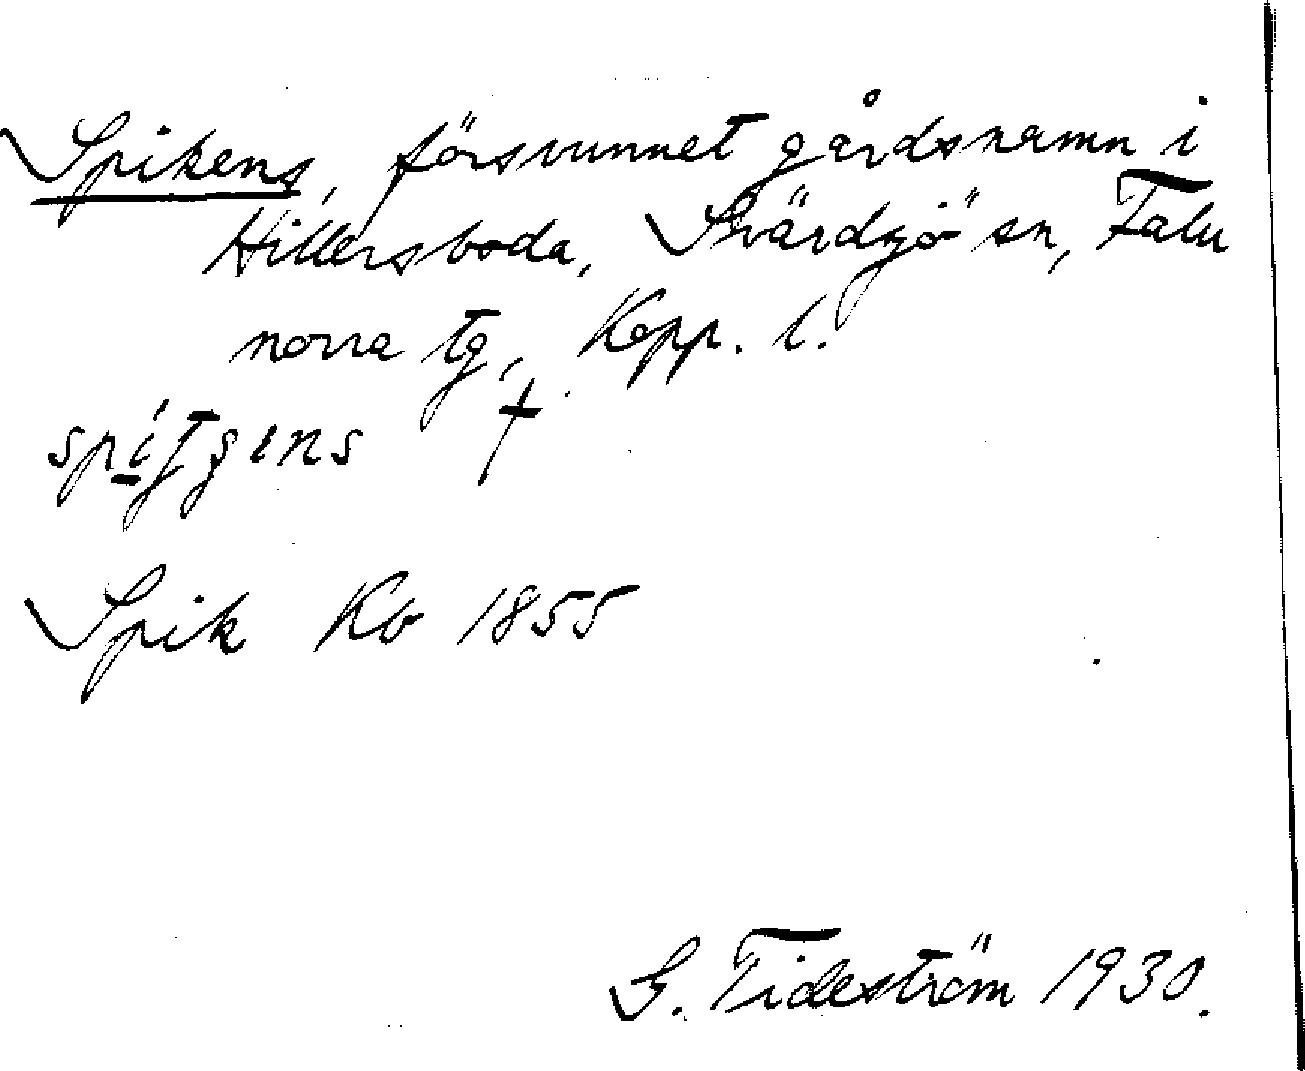 Spikens, försvunnet gårdsnamn i
Hillersboda, Svärdsjö sn, Falu
norra tg, Kopp. l.
Spik Kb 1855
G. Tideström 1930.